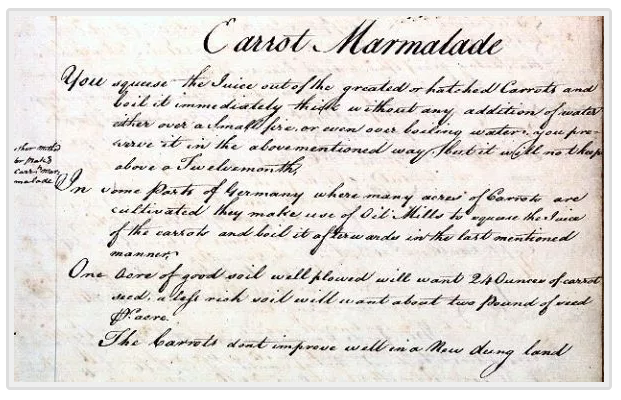 Carrot Marmalade
You squeese the Juice out of the greated or hatched Carrots and
boil it immediately thick without any addition of water
ether over a Small fire, or even over boiling water: you pre-
serve it in the abovementioned way, but it will not keep
above a Twelvemonth,
other method
to make
carrot mar-
malade
In some Parts of Germany where many acres of Carrots are
cultivated they make use of Oil Mills to squeese the Juice
of the carrots and boil it afterwards in the last mentioned
manner,
One acre of good soil well plowed will want 24 Ounces of carrot
seed. a less rich soil will want about two Pound of seed
Pr. acre.
The Carrots dont improve well in a New dung land